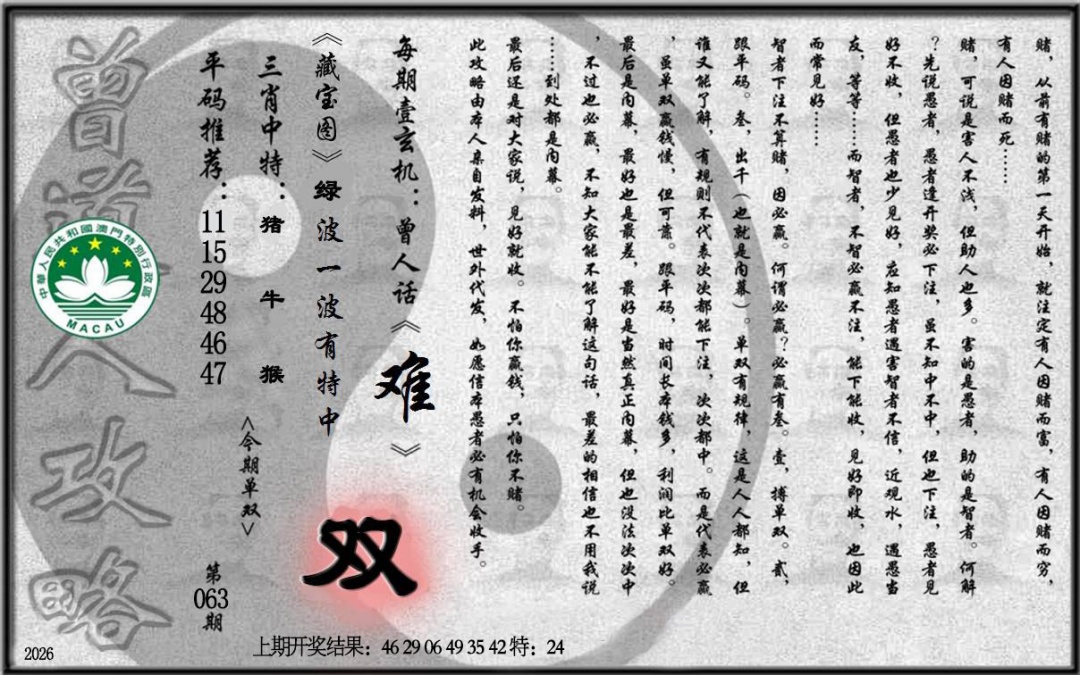 赌，从前有赌的第一天开始，就注定有人因赌而富，有人因赌而穷，
有人因赌而死……
赌，可说是害人不浅，但助人也多。害的是愚者，助的是智者。何解
？先说愚者，愚者逢开奖必下注，虽不知中不中，但也下注，愚者见
好不收，但愚者也少见好，应知愚者遇害智者不信，近观水，遇愚当
友，等等……而智者，不智必赢不注，能下能收，见好即收，也因此
而常见好……
智者下注不算赌，因必赢。何谓必赢？必赢有叁。壹，搏单双。贰，
跟平码。叁，出千（也就是内幕）。单双有规律，这是人人都知，但
谁又能了解，有规则不代表次次都能下注，次次都中。而是代表必赢
，虽单双赢钱慢，但可靠。跟平码，时间长本钱多，利润比单双好。
最后是内幕，最好也是最差，最好是当然真正内幕，但也没法次次中
，不过也必赢，不知大家能不能了解这句话，最差的相信也不用我说
……到处都是内幕。
最后还是对大家说，见好就收。不怕你赢钱，只怕你不赌。
此攻略由本人亲自发料，世外代发，如愿信本愚者必有机会收手。
每期壹玄机：曾人话《难》
《藏宝图》绿波一波有特中
双
三肖中特：猪 牛 猴
<今期单双>
平码推荐：11 15 29 48 46 47
第063期
曾道人攻略
中華人民共和國澳門特別行政區
MACAU
上期开奖结果：46 29 06 49 35 42 特：24
2026